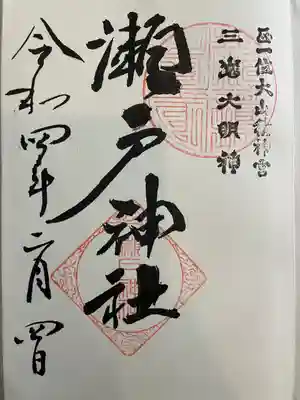 正一位大山積神宮
三嶋大明神
瀬戸神社
令和四年二月四日